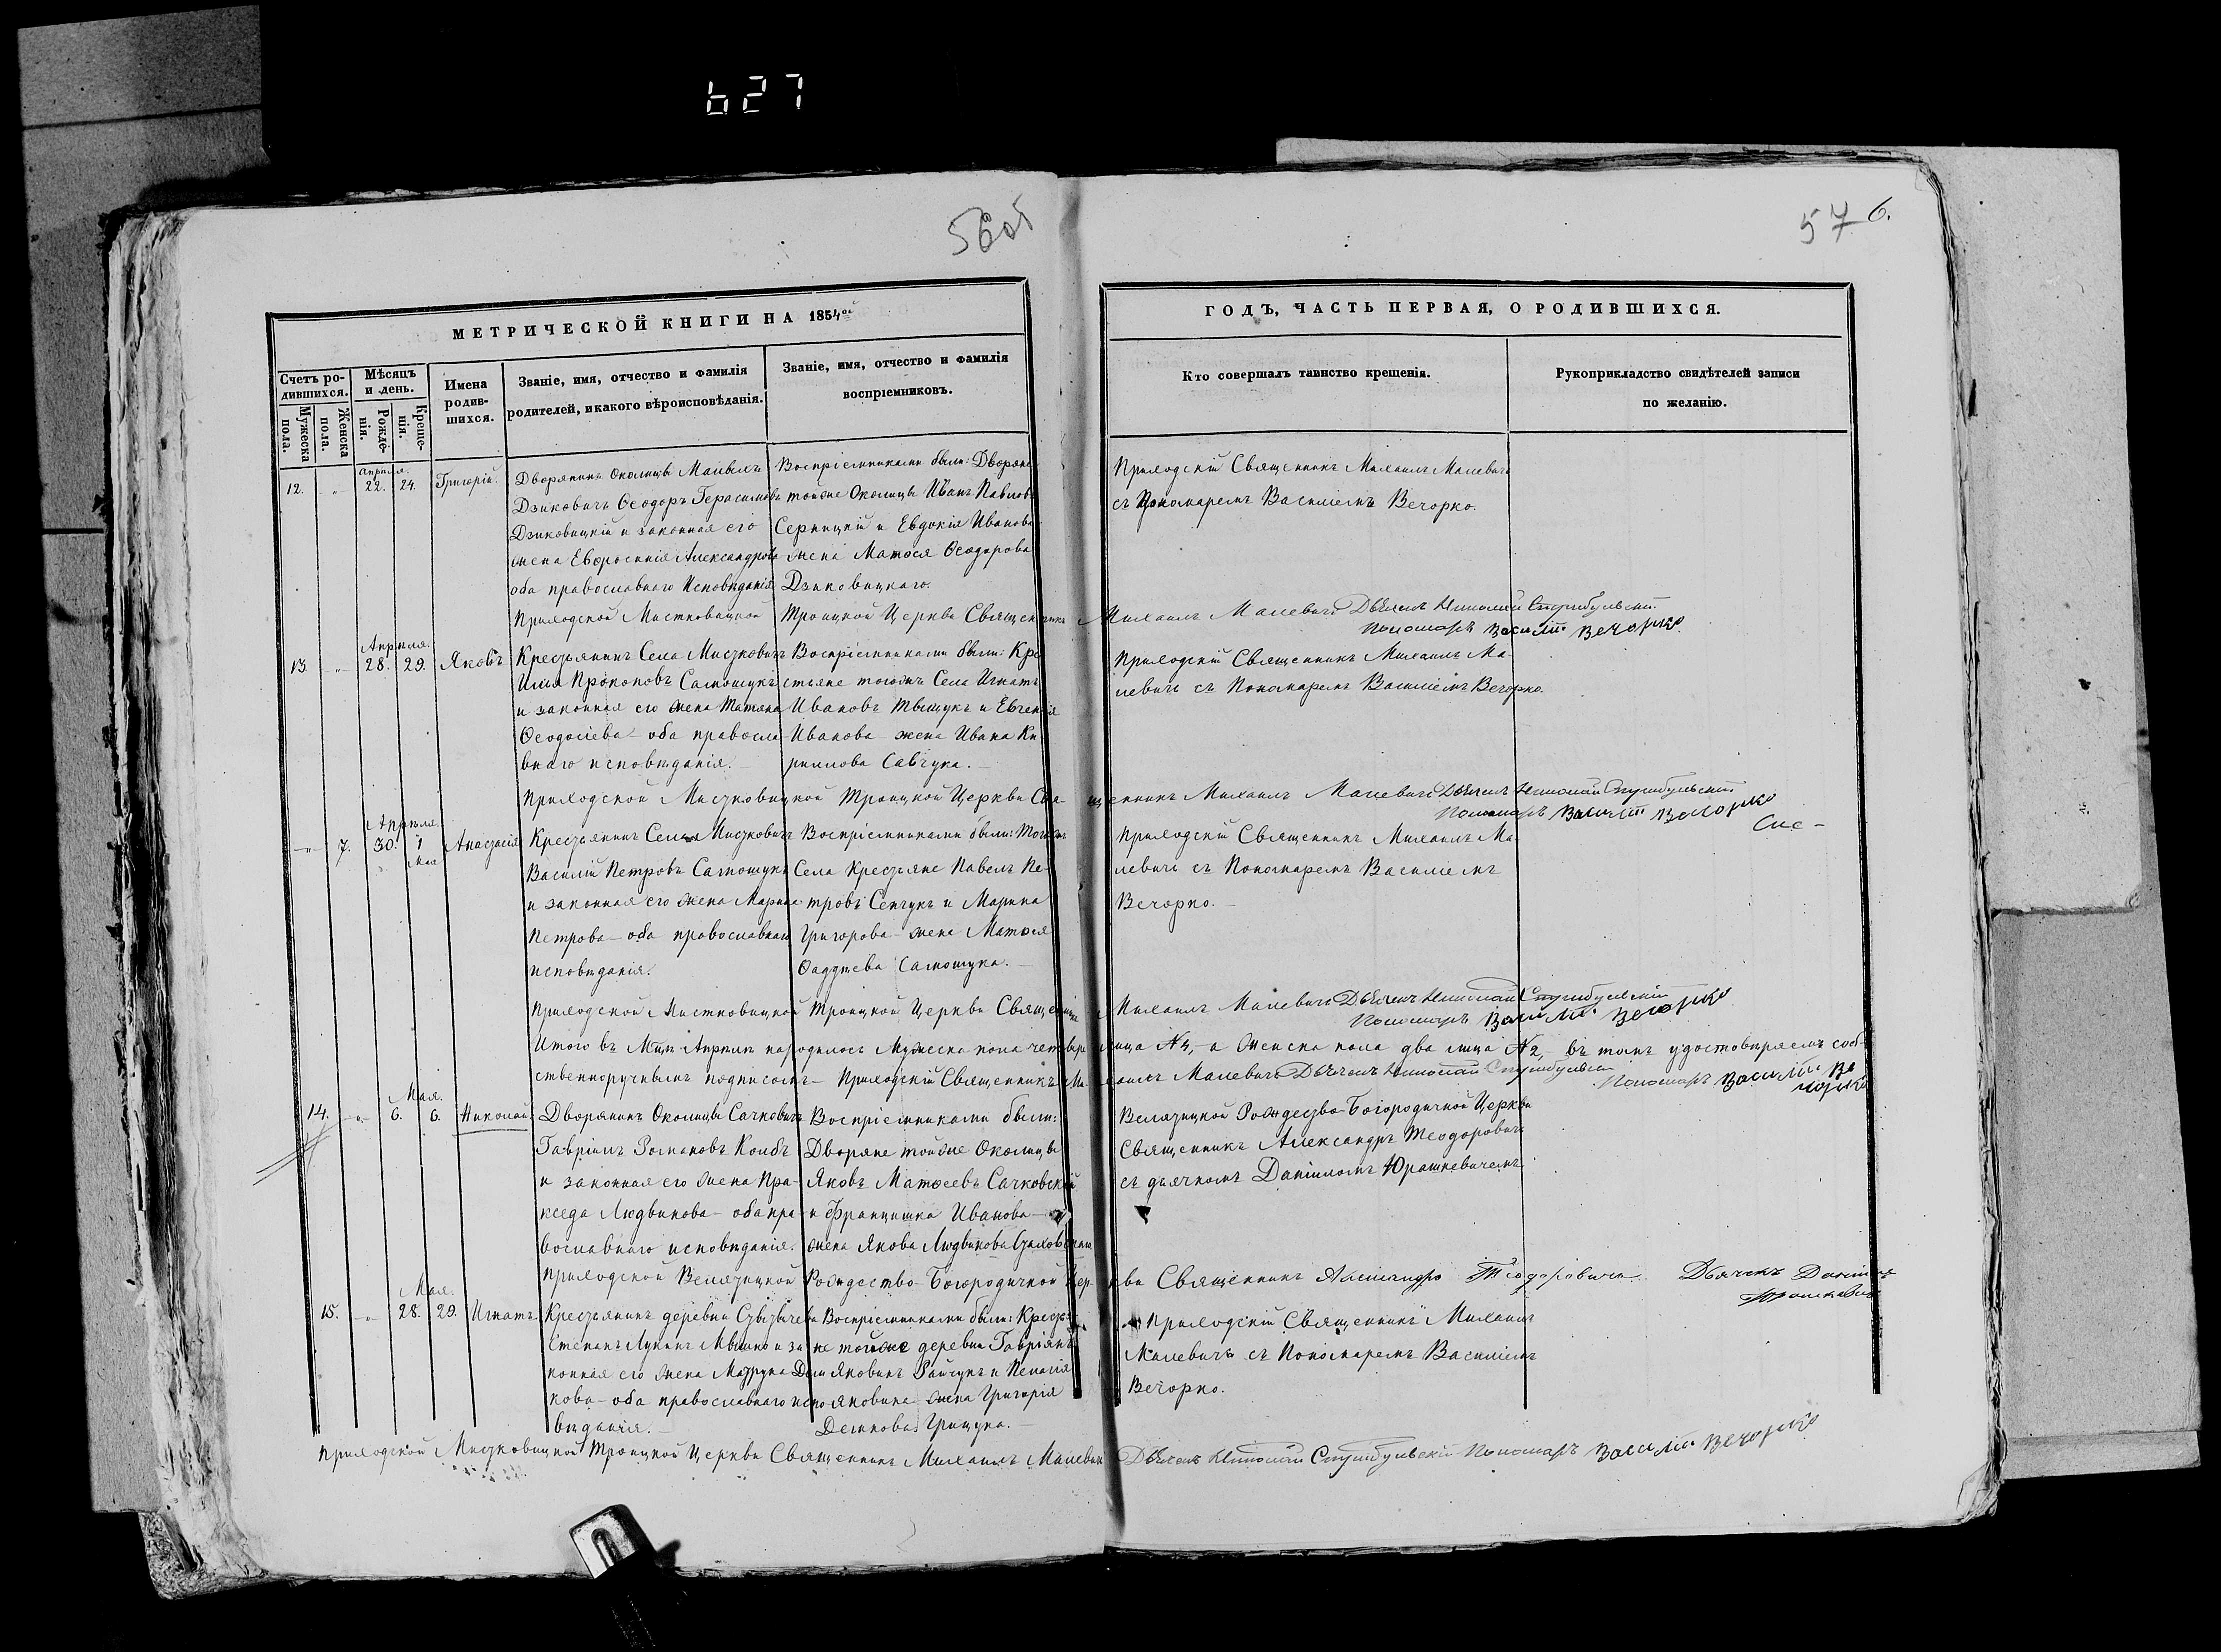 627
56об
57 6.
МЕТРИЧЕСКОЙ КНИГИ НА 1854ой
ГОДЪ, ЧАСТЬ ПЕРВАЯ, О РОДИВШИХСЯ.
Счетъ ро-
дившихся.
Мужеска пола.
Женска пола.
Мѣсяцъ
и день.
Рожде-
нія.
Креще-
нія.
Имена
родив-
шихся.
Званіе, имя, отчество и фамилія
родителей, и какого вѣроисповѣданія.
Званіе, имя, отчество и фамилія
воспріемниковъ.
Кто совершалъ таинство крещенія.
Рукоприкладство свидѣтелей записи
по желанію.
Апрѣля.
12. „ 22. 24. Григорій.
Дворянинъ Околицы Малыхъ
Дзиковичъ Ѳеодоръ Герасимовъ
Дзиковицкій и законная его
жена Евфросинія Александрова
оба православнаго Исповѣданія
Воспріемниками были: Дворяне
тойже Околицы Иванъ Павловъ
Серницкій и Евдокія Иванова
жена Матѳея Ѳеодорова
Дзиковицкаго.
Приходскій Священникъ Михаилъ Малевичъ
съ Пономаремъ Василіемъ Вечорко.
Приходской Мистковицкой Троицкой Церкви Священникъ Михаилъ Малевичъ Дьячекъ Николай
Пономаръ Василій Вечорко
Апрѣля.
13. „ 28. 29. Яковъ
Крестьянинъ Села Мистковичъ
Илія Прокоповъ Самошукъ
и законная его жена Татяна
Ѳеодосіева – оба правосла-
внаго исповѣданія.
Воспріемниками были: Кре-
стьяне тогожъ Села Игнатъ
Ивановъ и Евгенія
Иванова – жена Ивана Ки-
риллова Савчука.
Приходскій Священникъ Михаилъ Ма-
левичъ съ Пономаремъ Василіемъ Вечорко.
Приходской Мистковицкой Троицкой Церкви Свя-щенникъ Михаилъ Малевичъ Дьячекъ Николай
Пономаръ Василій Вечорко
Апрѣля.
„ 7. 30. 1 Мая Анастасія
Крестьянинъ Села Мистковичъ
Василій Петровъ Самошукъ
и законная его жена Марина
Петрова – оба православнаго
исповѣданія.
Воспріемниками были: Тогожъ
Села Крестьяне Павелъ Пе-
тровъ Сенчукъ и Марина
Григорова – жена Матѳея
Ѳаддѣева Самошука.
Приходскій Священникъ Михаилъ Ма-
левичъ съ Пономаремъ Василіемъ
Вечорко.
Приходской Мистковицкой Троицкой Церкви Священникъ Михаилъ Малевичъ Дьячекъ Николай
Пономаръ Василій Вечорко
Итого въ Мцѣ Апрѣлѣ народилось Мужеска пола четыри лица №4, а Женска пола два лица №2, въ томъ удостовѣряемъ соб-
ственноручнымъ подписомъ – Приходскій Священникъ Михаилъ Малевичъ Дьячекъ Николай
Пономаръ Василій Ве
чорко
Мая.
14. „ 6. 6. Николай
Дворянинъ Околицы Сачковичъ
Гавріилъ Романовъ Колбъ
и законная его жена Пра-
кседа Людвикова – оба пра-
вославнаго исповѣданія.
Воспріемниками были:
Дворяне тойже Околицы
Яковъ Матѳеевъ Сачковскій
и Францишка Иванова –
жена Якова Людвикова
Велятицкой Рождество-Богородичной Церкви
Священникъ Александръ Теодоровичъ
съ дьячкомъ Даніиломъ Юрашкевичемъ
Приходской Велятицкой Рождество-Богородичной Церкви Священникъ Александръ Теодоровичъ. Дьячекъ Даніилъ
Юрашкевичъ
Мая.
15. „ 28. 29. Игнатъ
Крестьянинъ деревни
Степанъ Лукинъ и за-
конная его жена Матруна Дем-
кова – оба православнаго испо-
вѣданія.
Воспріемниками были: Крестья-
не тойже деревни Гавріилъ
Яковинъ Райчукъ и Пелагія
Яковина – жена Григорія
Демкова Грицука.
Приходскій Священникъ Михаилъ
Малевичъ съ Пономаремъ Василіемъ
Вечорко.
Приходской Мистковицкой Троицкой Церкви Священникъ Михаилъ Малевичъ Дьячекъ Николай Пономаръ Василій Вечорко